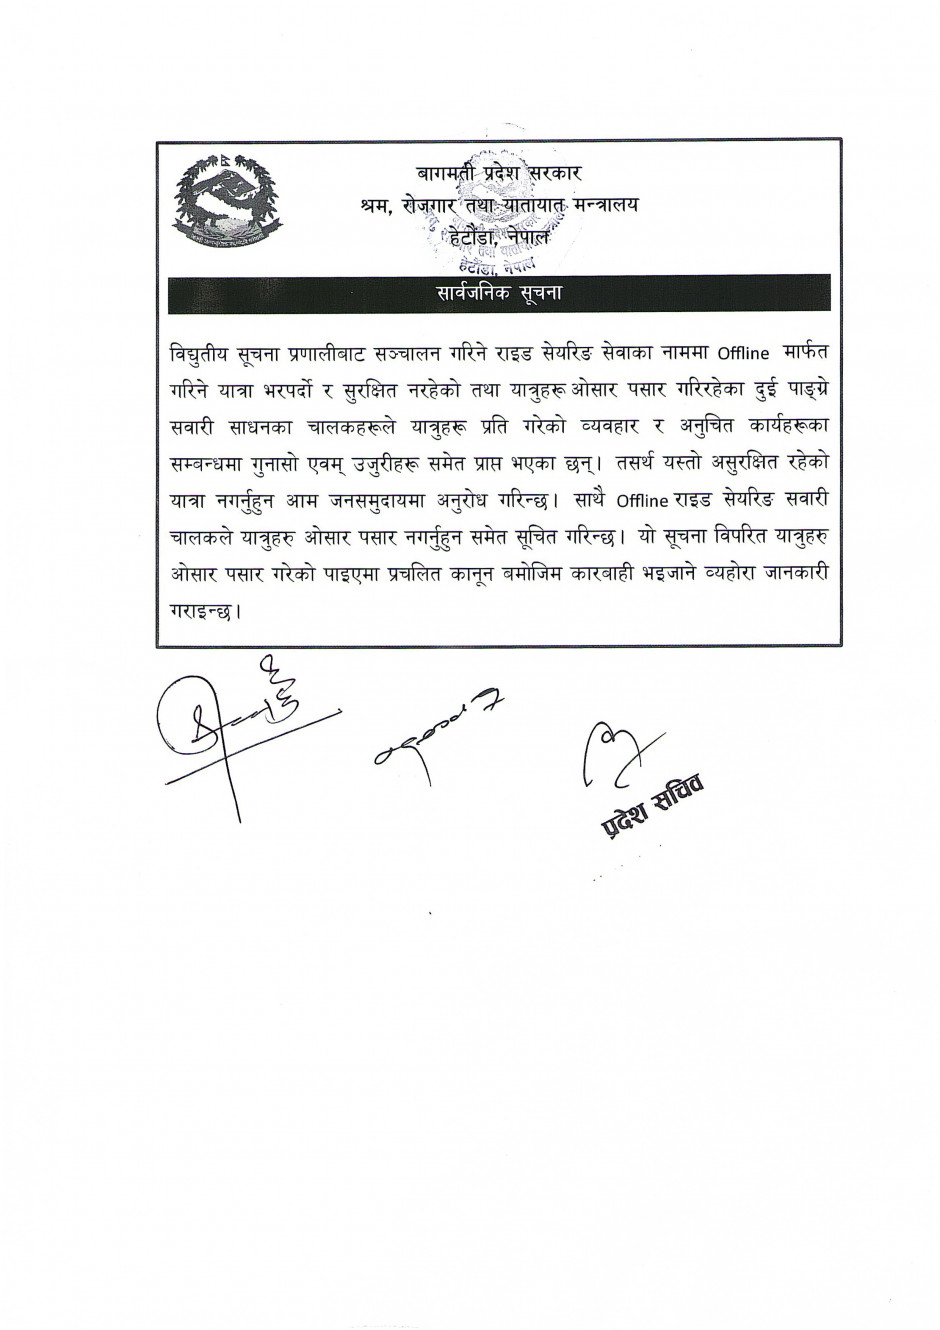 बागमती प्रदेश सरकार
श्रम, रोजगार तथा यातायात मन्त्रालय
हेटौंडा, नेपाल
हेटौंडा, नेपाल
सार्वजनिक सूचना
विद्युतीय सूचना प्रणालीबाट सञ्चालन गरिने राइड सेयरिङ सेवाका नाममा Offline मार्फत
गरिने यात्रा भरपर्दो र सुरक्षित नरहेको तथा यात्रुहरू ओसार पसार गरिरहेका दुई पाङ्ग्रे
सवारी साधनका चालकहरूले यात्रुहरू प्रति गरेको व्यवहार र अनुचित कार्यहरूका
सम्बन्धमा गुनासो एवम् उजुरीहरू समेत प्राप्त भएका छन्। तसर्थ यस्तो असुरक्षित रहेको
यात्रा नगर्नुहुन आम जनसमुदायमा अनुरोध गरिन्छ। साथै Offline राइड सेयरिङ सवारी
चालकले यात्रुहरु ओसार पसार नगर्नुहुन समेत सूचित गरिन्छ। यो सूचना विपरित यात्रुहरु
ओसार पसार गरेको पाइएमा प्रचलित कानून बमोजिम कारबाही भइजाने व्यहोरा जानकारी
गराइन्छ।
प्रदेश सचिव